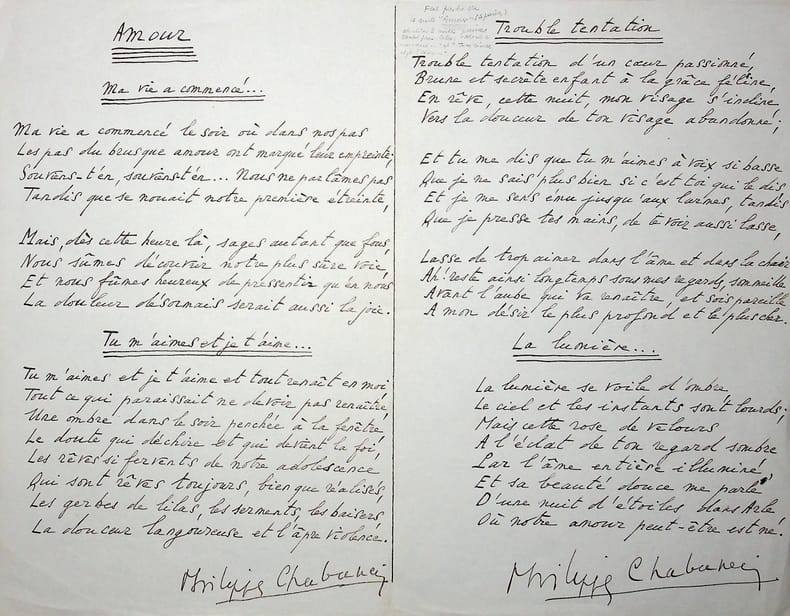 Amour
Ma vie a commencé...
Ma vie a commencé le soir où dans nos pas
Les pas du brusque amour ont marqué leur empreinte;
Souviens-t'en, souviens-t'en... Nous ne parlâmes pas
Tandis que se nouait notre première étreinte,
Mais, dès cette heure là, sages autant que fous,
Nous sûmes découvrir notre plus sûre voie,
Et nous fûmes heureux de pressentir qu'en nous
La douleur désormais serait aussi la joie.
Tu m'aimes et je t'aime...
Tu m'aimes et je t'aime et tout renaît en moi
Tout ce qui paraissait ne devoir pas renaître,
Une ombre dans le soir penchée à la fenêtre,
Le doute qui déchire et qui devient la foi,
Les rêves si fervents de notre adolescence
Qui sont rêves toujours, bien que réalisés,
Les gerbes de lilas, les serments, les baisers,
La douceur langoureuse et l'âpre violence.
Philippe Chabaneix
Fait partie de
la suite "Amour"
Trouble tentation
Trouble tentation d'un cœur passionné,
Brune et secrète enfant à la grâce féline,
En rêve, cette nuit, mon visage s'incline
Vers la douceur de ton visage abandonné;
Et tu me dis que tu m'aimes à voix si basse
Que je ne sais plus bien si c'est toi qui le dis
Et je me sens ému jusqu'aux larmes, tandis
Que je presse tes mains, de te voir aussi lasse,
Lasse de trop aimer dans l'âme et dans la chair
Ah! reste ainsi longtemps sous mes regards, sommeille
Avant l'aube qui va renaître, et sois pareille
A mon désir le plus profond et le plus cher.
La lumière...
La lumière se voile d'ombre
Le ciel et les instants sont lourds;
Mais cette rose de velours
A l'éclat de ton regard sombre
Par l'âme entière illuminé
Et sa beauté douce me parle
D'une nuit d'étoiles dans Arle
Où notre amour peut-être est né.
Philippe Chabaneix